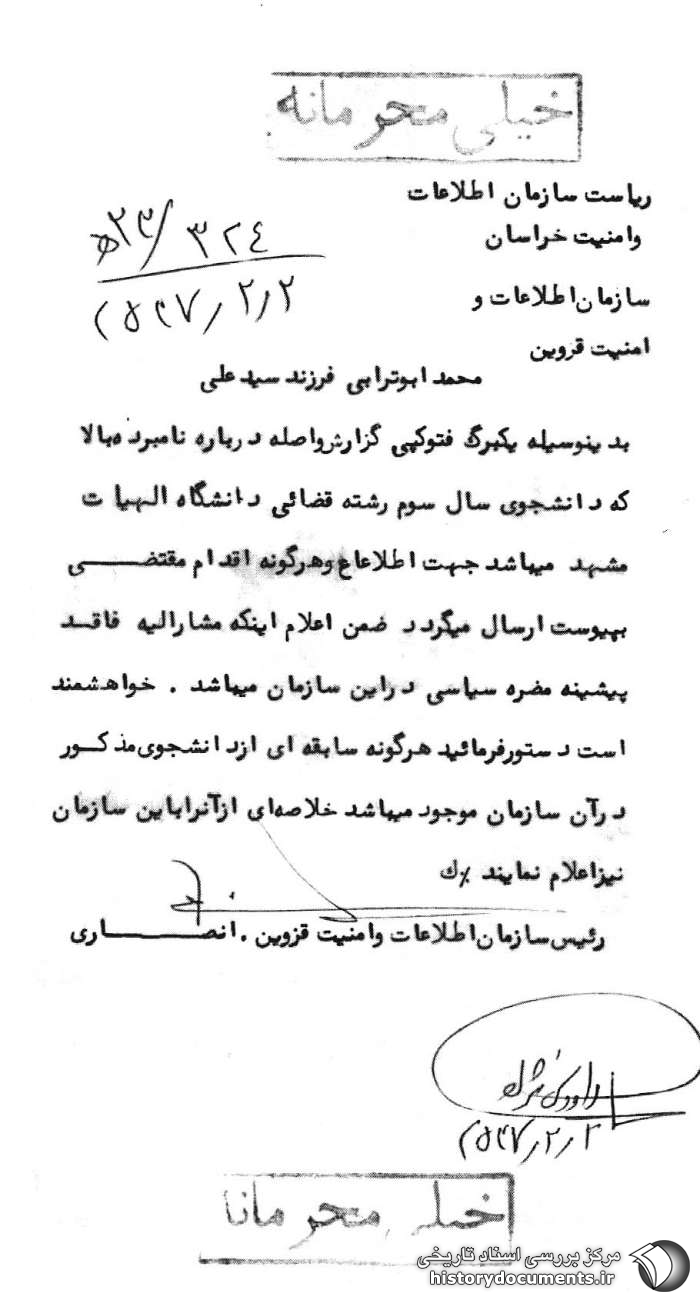 خیلی محرمانه
ریاست سازمان اطلاعات
وامنیت خراسان
۳۲٤ / ۲۳ﻫ
۲۵۳۷٫۲٫۲
سازمان اطلاعات و
امنیت قزوین
محمد ابوترابی فرزند سید علی
بدینوسیله یکبرگ فتوکپی گزارش واصله درباره نامبرده بالا
که دانشجوی سال سوم رشته قضائی دانشگاه الهیات
مشهد میباشد جهت اطلاع وهرگونه اقدام مقتضـــی
بپیوست ارسال میگردد ضمن اعلام اینکه مشارالیه فاقد
پیشینه مضره سیاسی دراین سازمان میباشد . خواهشمند
است دستورفرمائید هرگونه سابقه ای ازدانشجوی مذکور
درآن سازمان موجود میباشد خلاصه‌ای ازآنراباین سازمان
نیزاعلام نمایند ٪ك
رئیس سازمان اطلاعات وامنیت قزوین . انصـــاری
۲۵۳۷٫۲٫۲
خیلی محرمانه
مرکز بررسی اسناد تاریخی
historydocuments.ir